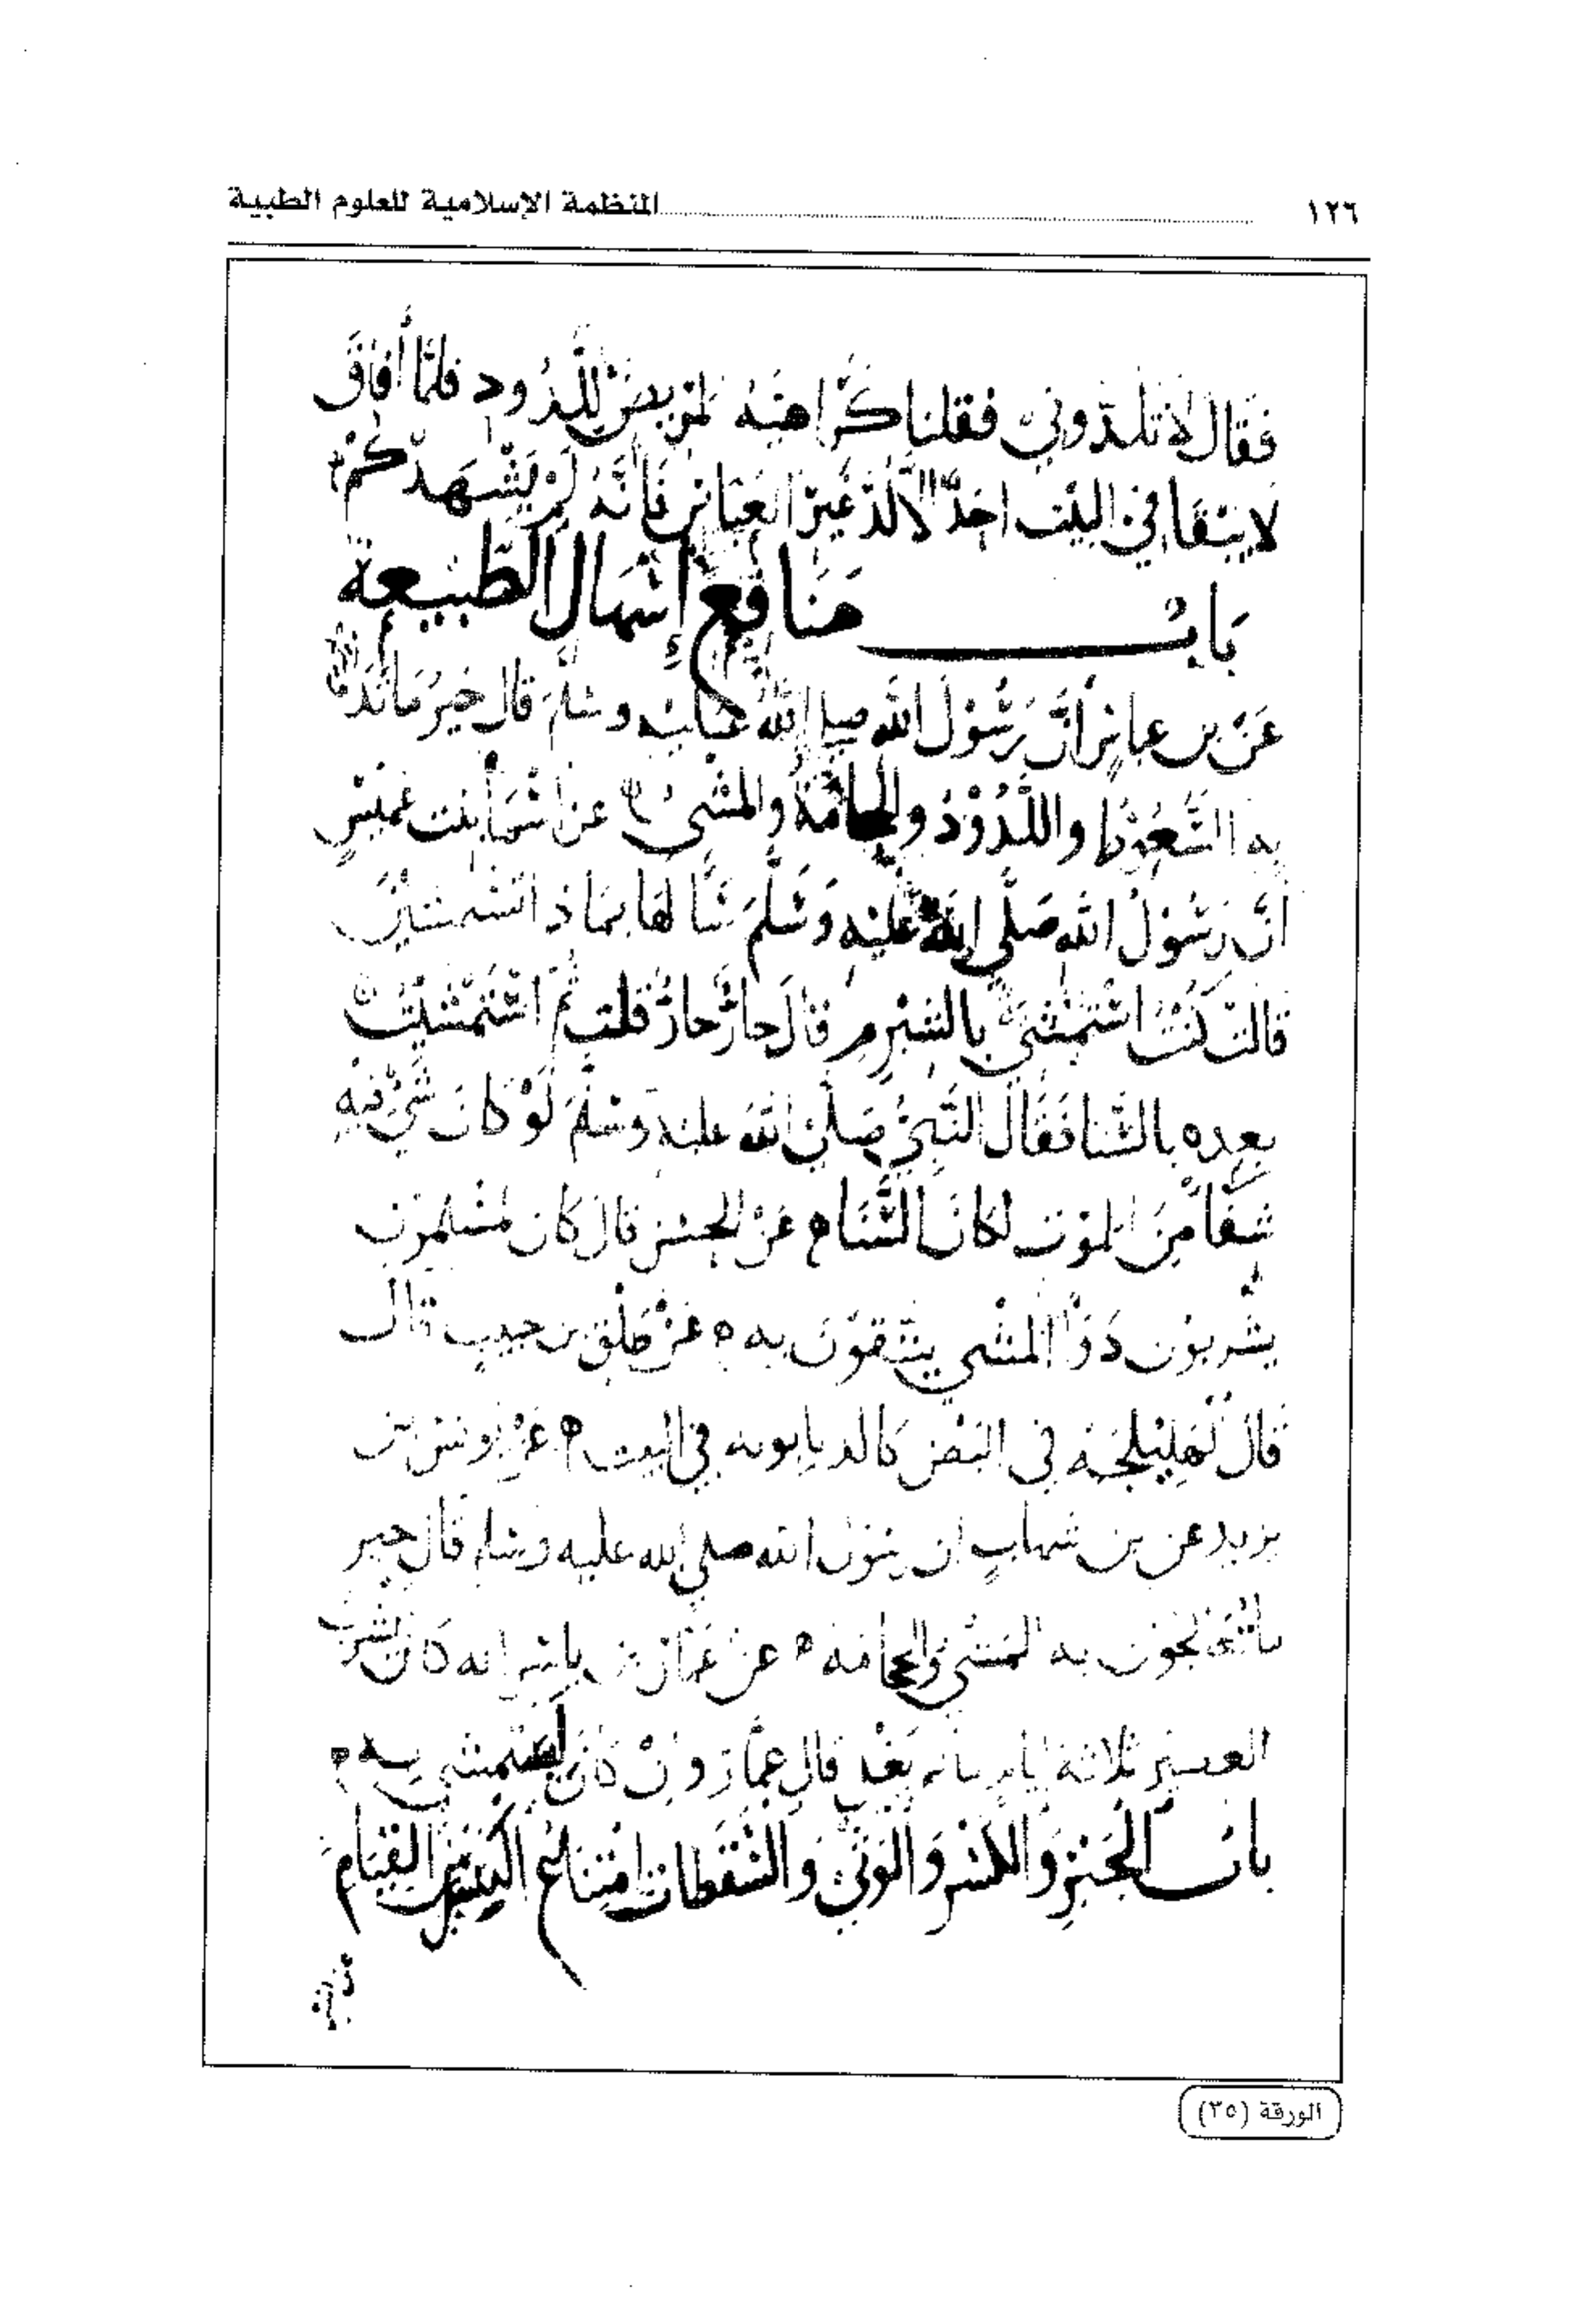 ١٢٦ المنظمة الإسلامية للعلوم الطبية
فقال لا تلدوني فقلنا كراهية المريض للدود فلما أفاق
لا يبقا في البيت احد الا لد غير العباس فانه لم يشهدكم
باب منافع إسهال الطبيعة
عن بن عباس أن رسول الله صلى الله عليه وسلم قال خير ما تداويتم
به السعوط واللدود والحجامة والمشي عن اسما بنت عميس
أن رسول الله صلى الله عليه وسلم سألها بماذا تستمشين
قالت كنت استمشي بالشبرم قال حار حار قلت ثم استمشيت
بعده بالسنا فقال النبي صلى الله عليه وسلم لو كان شي فيه
شفا من الموت لكان السنا عن الحسن قال كان المسلمون
يشربون دوا المشي يتقون به عن طلق بن حبيب قال
قال الهليلجة في البطن كالكدبانونه في البيت عن يونس بن
يزيد عن بن شهاب ان رسول الله صلى الله عليه وسلم قال خير
ما تتعالجون به المشي والحجامة عن عمار بن ياسر انه كان يشرب
العصير ثلاثة ايام بعد قال عمار وان كان ليستمشي به
باب الجبر والكسر والوثي والسقطات امتناع الكسير من القيام
الورقة (٣٥)